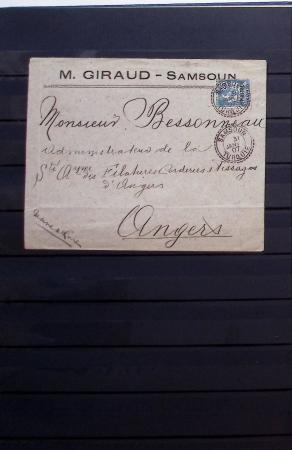 M. GIRAUD - SAMSOUN
Monsieur Bessonneau
Administrateur de la
Sté Anyme des Filatures Corderies & Tissages
d'Angers
Angers
SAMSOUN
TURQUIE